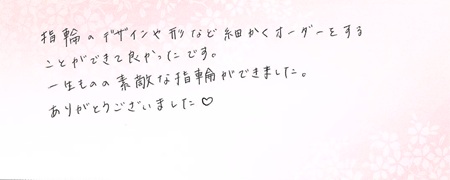 指輪のデザインや形など細かくオーダーをする
ことができて良かったです。
一生ものの素敵な指輪ができました。
ありがとうございました♡